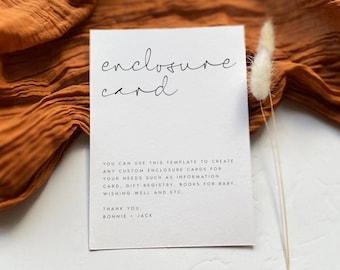 enclosure
card
YOU CAN USE THIS TEMPLATE TO CREATE
ANY CUSTOM ENCLOSURE CARDS FOR
YOUR NEEDS SUCH AS INFORMATION
CARD, GIFT REGISTRY, BOOKS FOR BABY,
WISHING WELL AND ETC.
THANK YOU,
BONNIE + JACK